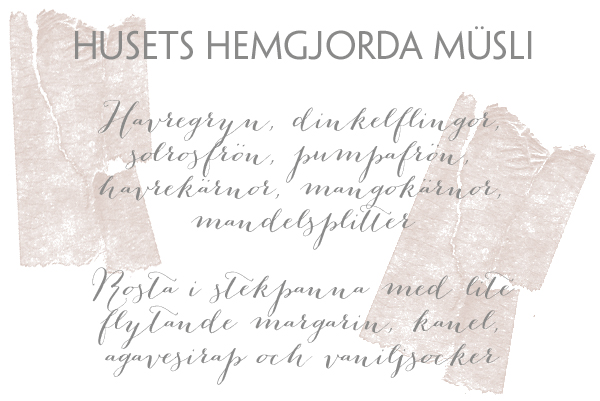 HUSETS HEMGJORDA MÜSLI
Havregryn, dinkelflingor,
solrosfrön, pumpafrön,
havrekärnor, mangokärnor,
mandelsplitter
Rosta i stekpanna med lite
flytande margarin, kanel,
agavesirap och vaniljsocker